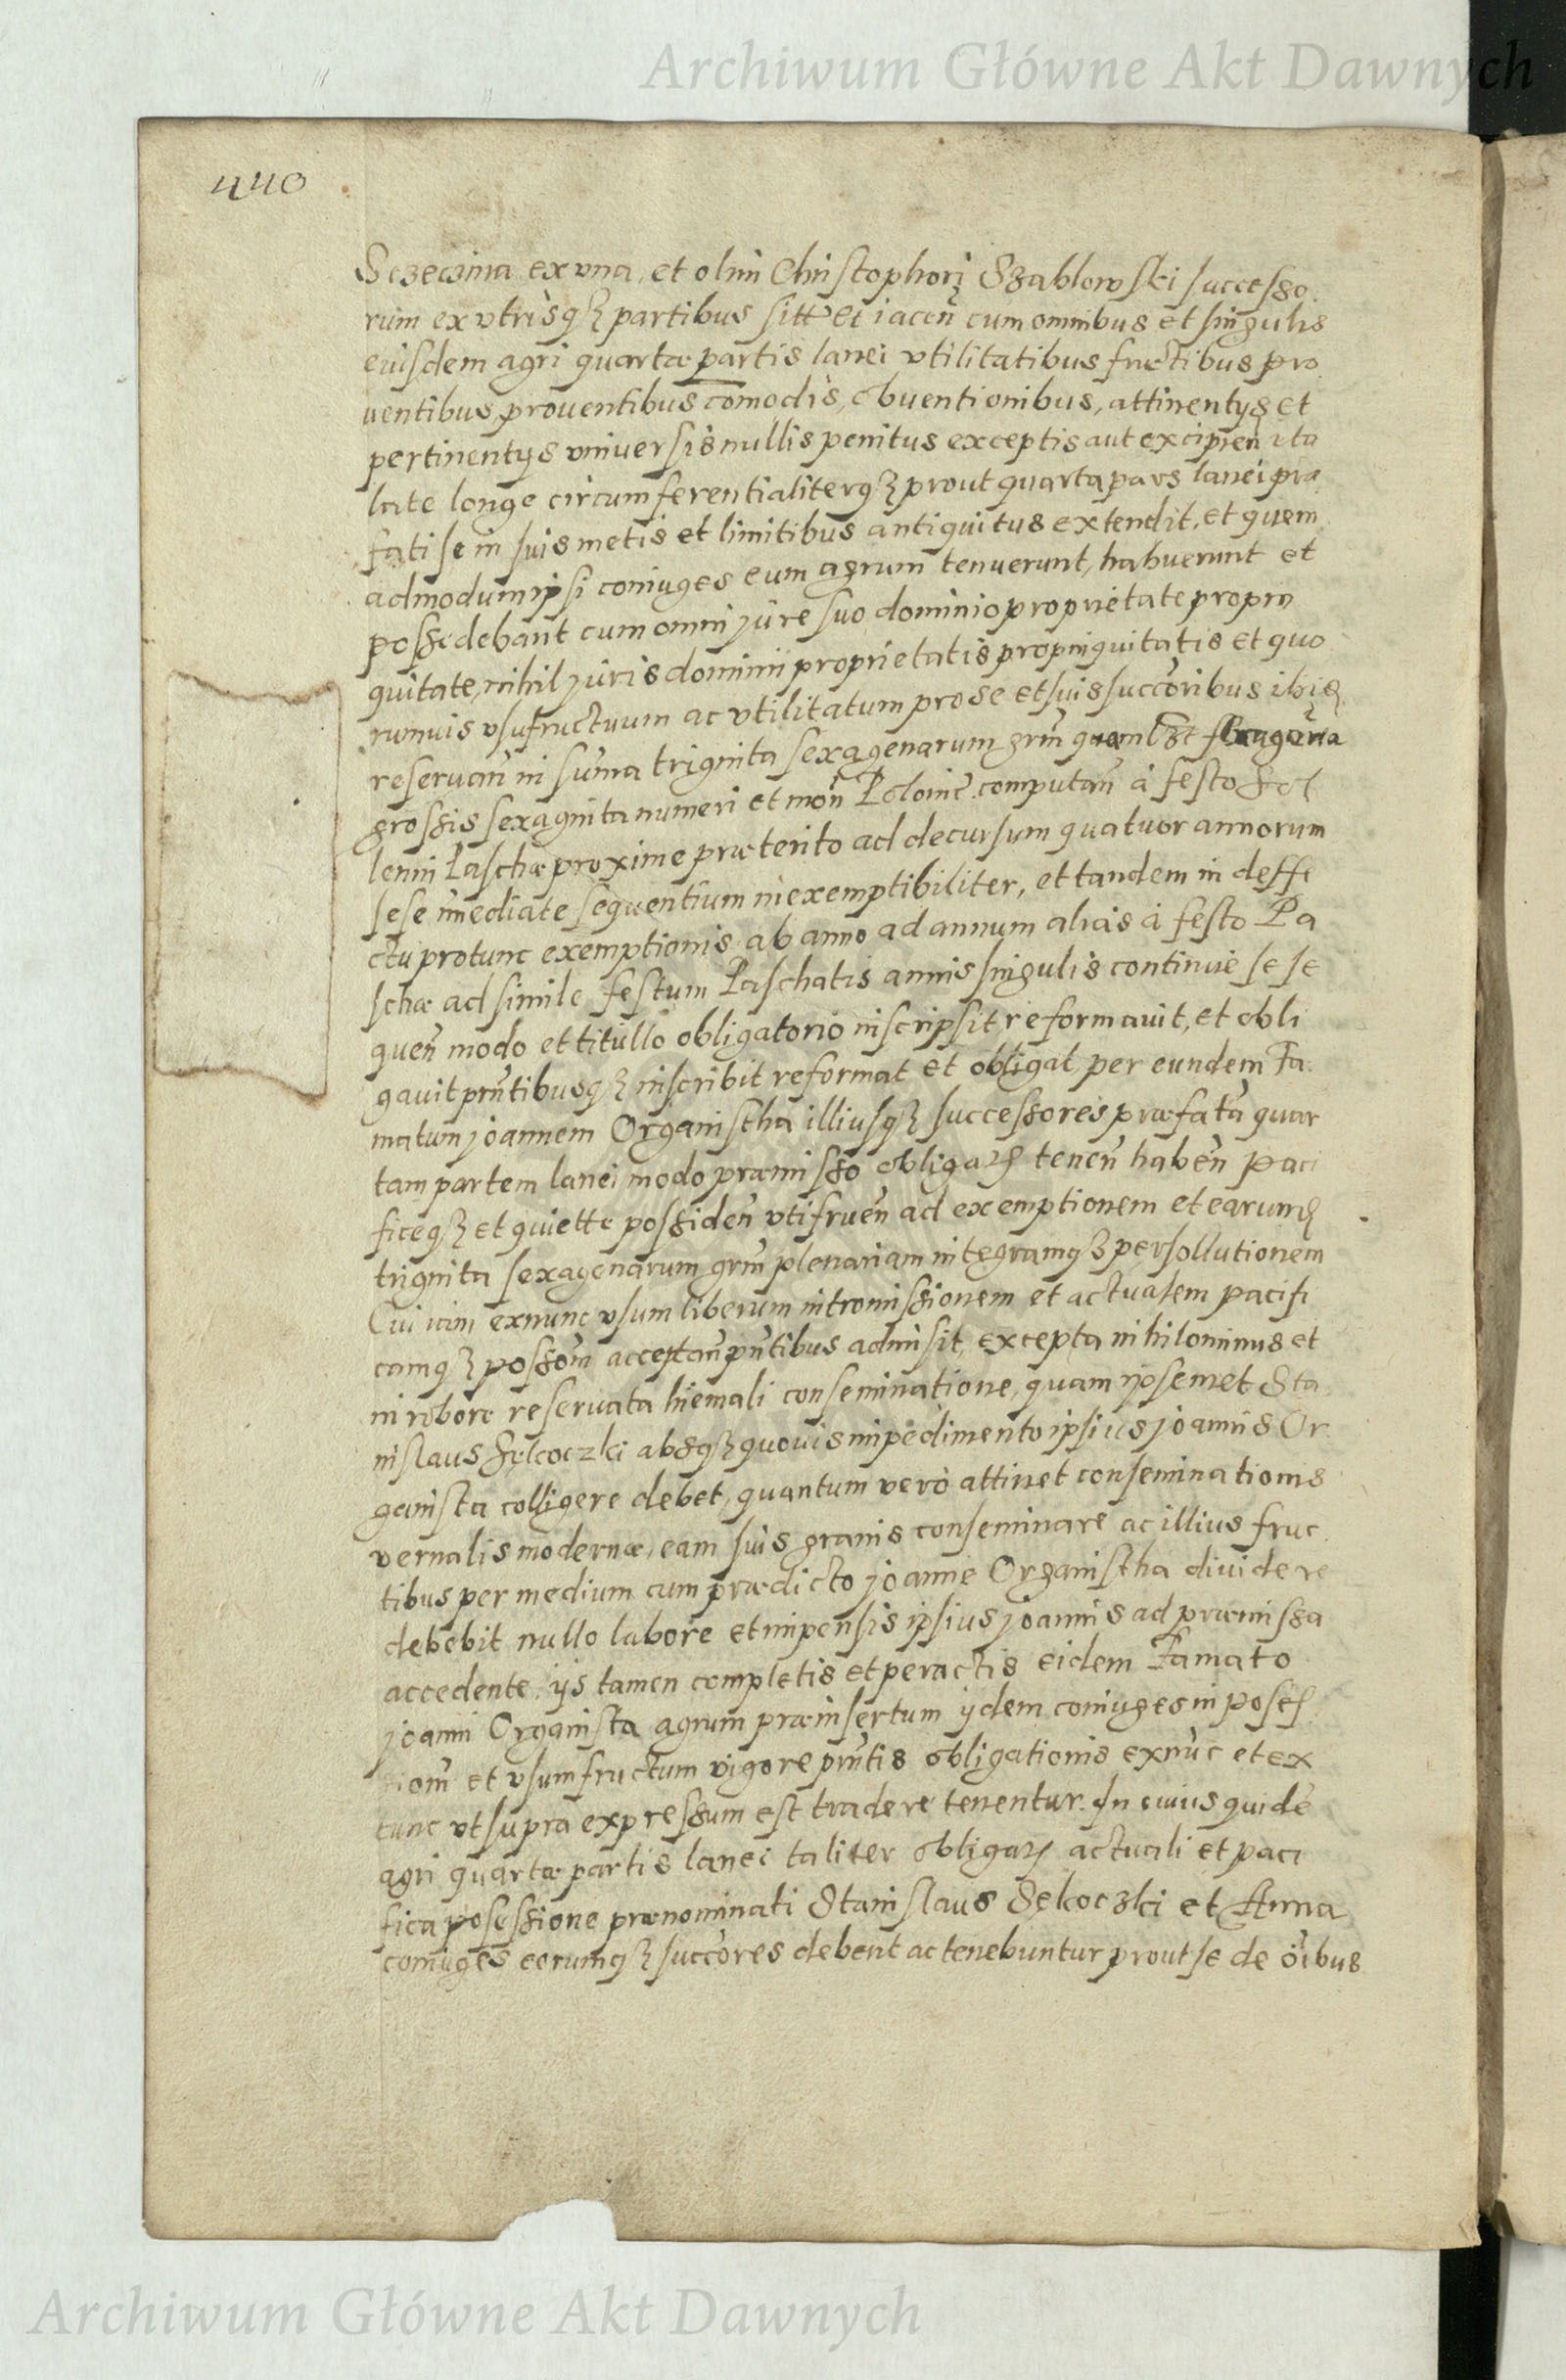 Archiwum Główne Akt Dawnych
440
Szeczina ex vna, et olim Christophori Szablowski successo
rum ex vtrisq3 partibus sitt et iaceñ cum omnibus et singulis
euisdem agri quartæ partis lanei vtilitatibus fructibus pro
ventibus, prouentibus com̃odis, obuentionibus, attinentÿs et
pertinentÿs vniuersis nullis penitus exceptis aut excipieñ ita
late longe circumferentialiterq3 prout quarta pars lanei præ
fati se in suis metis et limitibus antiquitus extendit, et quem
admodum ipsi coniuges eum agrum tenuerunt, habuerunt et
possidebant cum omni jure suo dominio proprietate propin
quitate, nihil juris dominii proprietatis propinquitatis et quo
rumuis vsufructuum ac vtilitatum pro se et suis succoribus ibid
reseruañ in sum̃a triginta sexagenarum grm̃ quamlbt sexagena
grossis sexaginta numeri et moñ Polonic̃. computañ à festo sol
lenni Paschæ proxime præterito ad decursum quatuor annorum
sese im̃ediate sequentium inexemptibiliter, et tandem in deffe
ctu protunc exemptionis ab anno ad annum alias à festo Pa
schæ ad simile festum Paschatis annis singulis continuè sese
queñ modo et titullo obligatorio inscripsit, reformauit, et obli
gauit prñtibusq3 inscribit reformat et obligat per eundem Fa
matum joannem Organistha illiusq3 successores præfatã quar
tam partem lanei modo præmisso obligat teneñ habeñ paci
ficeq3 et quiette possideñ vtifrueñ ad exemptionem et earumd
triginta sexagenarum grm̃ plenariam integramq3 persollutionem
Cui iam exnunc vsum liberum intromissionem et actualem pacifi
camq3 possom̃ acceptañ pñtibus admisit, excepta nihilominus et
in robore reseruata hiemali conseminatione, quam ipsemet Sta
nislaus Sękoczki absq3 quouis impedimento ipsius joannis Or
ganista colligere debet, quantum verò attinet conseminationis
vernalis modernæ, eam suis granis conseminare ac illius fruc
tibus per medium cum prædicto joanne Organistha diuidere
debebit nullo labore et impensis ipsius joannis ad præmissa
accedente, ijs tamen completis et peractis eidem Famato
joanni Organista agrum præinsertum ÿdem coniuges in poses
siom̃ et vsumfructum vigore prñtis obligationis exnũc et ex
tunc vt supra expressum est tradere tenentur. In cuius quidẽ
agri quartæ partis lanei taliter obligat actuali et paci
fica posessione prænominati Stanislaus Sękoczki et Anna
coniuges eorumq3 succores debent ac tenebuntur prout se de õibus
Archiwum Główne Akt Dawnych